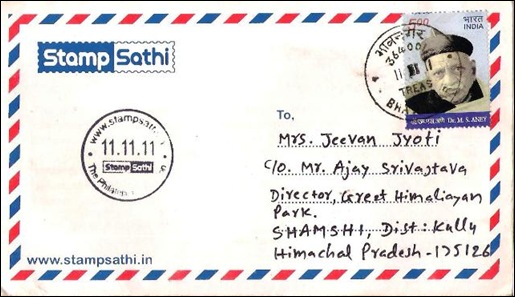 Stamp Sathi
5.00 भारत
INDIA
भावनगर
36400
11
TREAS
BHA
Dr. M. S. ANEY
www.stampsathi
11.11.11
Stamp Sathi
The Philatel
To,
Mrs. Jeevan Jyoti
C/O. Mr. Ajay Srivastava
Director, Greet Himalayan
Park.
SHAMSHI, Dist: Kully
Himachal Pradesh-175126
www.stampsathi.in